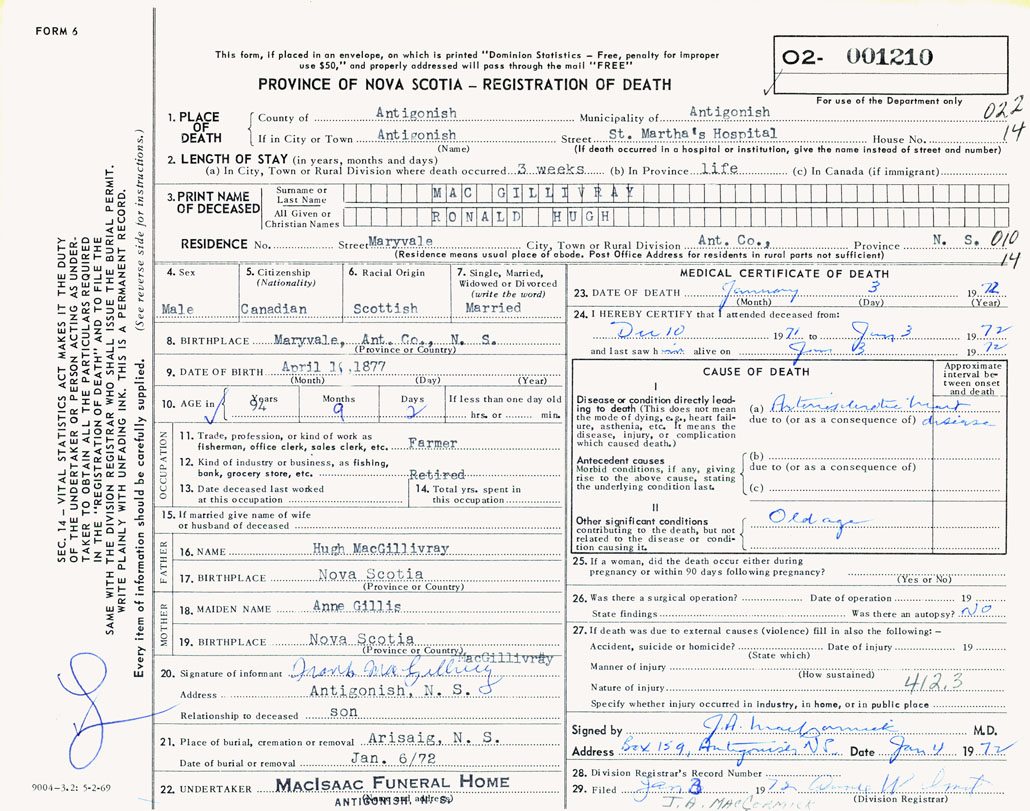 FORM 6
This form, if placed in an envelope, on which is printed "Dominion Statistics – Free, penalty for improper
use $50," and properly addressed will pass through the mail "FREE"
PROVINCE OF NOVA SCOTIA – REGISTRATION OF DEATH
O2- 001210
For use of the Department only
022
14
1. PLACE OF DEATH
County of Antigonish Municipality of Antigonish
If in City or Town Antigonish Street St. Martha's Hospital House No.
(Name) (If death occurred in a hospital or institution, give the name instead of street and number)
2. LENGTH OF STAY (in years, months and days)
(a) In City, Town or Rural Division where death occurred 3 weeks (b) In Province life (c) In Canada (if immigrant)
3. PRINT NAME OF DECEASED
Surname or Last Name MAC GILLIVRAY
All Given or Christian Names RONALD HUGH
RESIDENCE No. Street Maryvale City, Town or Rural Division Ant. Co., Province N. S. 010
(Residence means usual place of abode. Post Office Address for residents in rural parts not sufficient) 14
4. Sex
Male
5. Citizenship
(Nationality)
Canadian
6. Racial Origin
Scottish
7. Single, Married,
Widowed or Divorced
(write the word)
Married
8. BIRTHPLACE Maryvale, Ant. Co., N. S.
(Province or Country)
9. DATE OF BIRTH April 1, 1877
(Month) (Day) (Year)
10. AGE in
Years Months Days If less than one day old
94 9 2 hrs. or min.
OCCUPATION
11. Trade, profession, or kind of work as
fisherman, office clerk, sales clerk, etc. Farmer
12. Kind of industry or business, as fishing,
bank, grocery store, etc. Retired
13. Date deceased last worked
at this occupation
14. Total yrs. spent in
this occupation
15. If married give name of wife
or husband of deceased
FATHER
16. NAME Hugh MacGillivray
17. BIRTHPLACE Nova Scotia
(Province or Country)
MOTHER
18. MAIDEN NAME Anne Gillis
19. BIRTHPLACE Nova Scotia
(Province or Country)
MacGillivray
20. Signature of informant Frank MacGillivray
Address Antigonish, N. S.
Relationship to deceased son
21. Place of burial, cremation or removal Arisaig, N. S.
Date of burial or removal Jan. 6/72
22. UNDERTAKER MacIsaac Funeral Home
ANTIGONISH, N. S.
(Name and address)
MEDICAL CERTIFICATE OF DEATH
23. DATE OF DEATH January 3 1972
(Month) (Day) (Year)
24. I HEREBY CERTIFY that I attended deceased from:
Dec 10 1971 to Jan 3 1972
and last saw him alive on Jan 3 1972
CAUSE OF DEATH
Approximate
interval be-
tween onset
and death
I
Disease or condition directly lead-
ing to death (This does not mean
the mode of dying, e.g., heart fail-
ure, asthenia, etc. It means the
disease, injury, or complication
which caused death.)
(a) Arteriosclerotic heart
due to (or as a consequence of) disease
Antecedent causes
Morbid conditions, if any, giving
rise to the above cause, stating
the underlying condition last.
(b)
due to (or as a consequence of)
(c)
II
Other significant conditions
contributing to the death, but not
related to the disease or condi-
tion causing it.
Old age
25. If a woman, did the death occur either during
pregnancy or within 90 days following pregnancy?
(Yes or No)
26. Was there a surgical operation? Date of operation 19
State findings Was there an autopsy? NO
27. If death was due to external causes (violence) fill in also the following: –
Accident, suicide or homicide? Date of injury 19
(State which)
Manner of injury
(How sustained)
Nature of injury 412.3
Specify whether injury occurred in industry, in home, or in public place
Signed by J.A. MacCormick M.D.
Address Box 159, Antigonish N.S. Date Jan 4 1972
28. Division Registrar's Record Number
29. Filed Jan 1972
(Division Registrar)
J. A. MACCORMICK
SEC. 14 – VITAL STATISTICS ACT MAKES IT THE DUTY
OF THE UNDERTAKER OR PERSON ACTING AS UNDER-
TAKER TO OBTAIN ALL THE PARTICULARS REQUIRED
IN THE "REGISTRATION OF DEATH" AND TO FILE THE
SAME WITH THE DIVISION REGISTRAR WHO SHALL ISSUE THE BURIAL PERMIT.
WRITE PLAINLY WITH UNFADING INK. THIS IS A PERMANENT RECORD.
Every item of information should be carefully supplied. (See reverse side for instructions.)
9004-3.2: 5-2-69